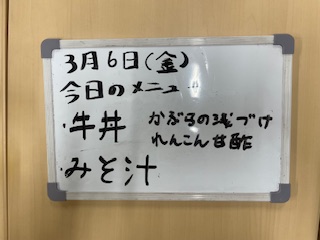 3月6日(金)
今日のメニュー
・牛丼
かぶらの浅づけ
れんこん甘酢
・みそ汁